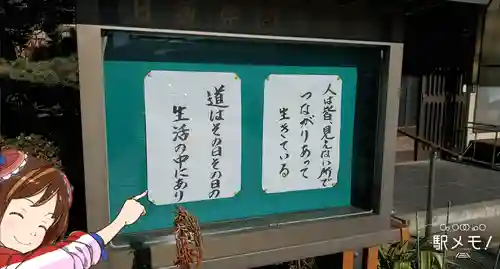 人は皆、見えない所で
つながりあって
生きている
道はその日その日の
生活の中にあり
駅メモ!